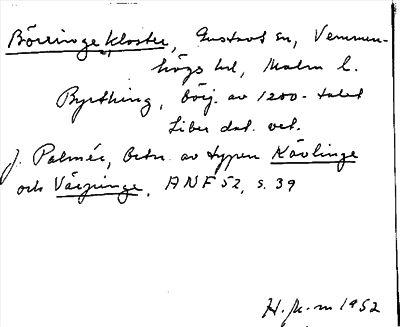 Börringe kloster, Gustavs sn, Vemmen-
högs hd, Malm l.
Byrthing, börj. av 1200-talet
Liber dat. vet.
J. Palmér, Betn. av typen Kävlinge
och Värpinge, ANF 52, s. 39
1952